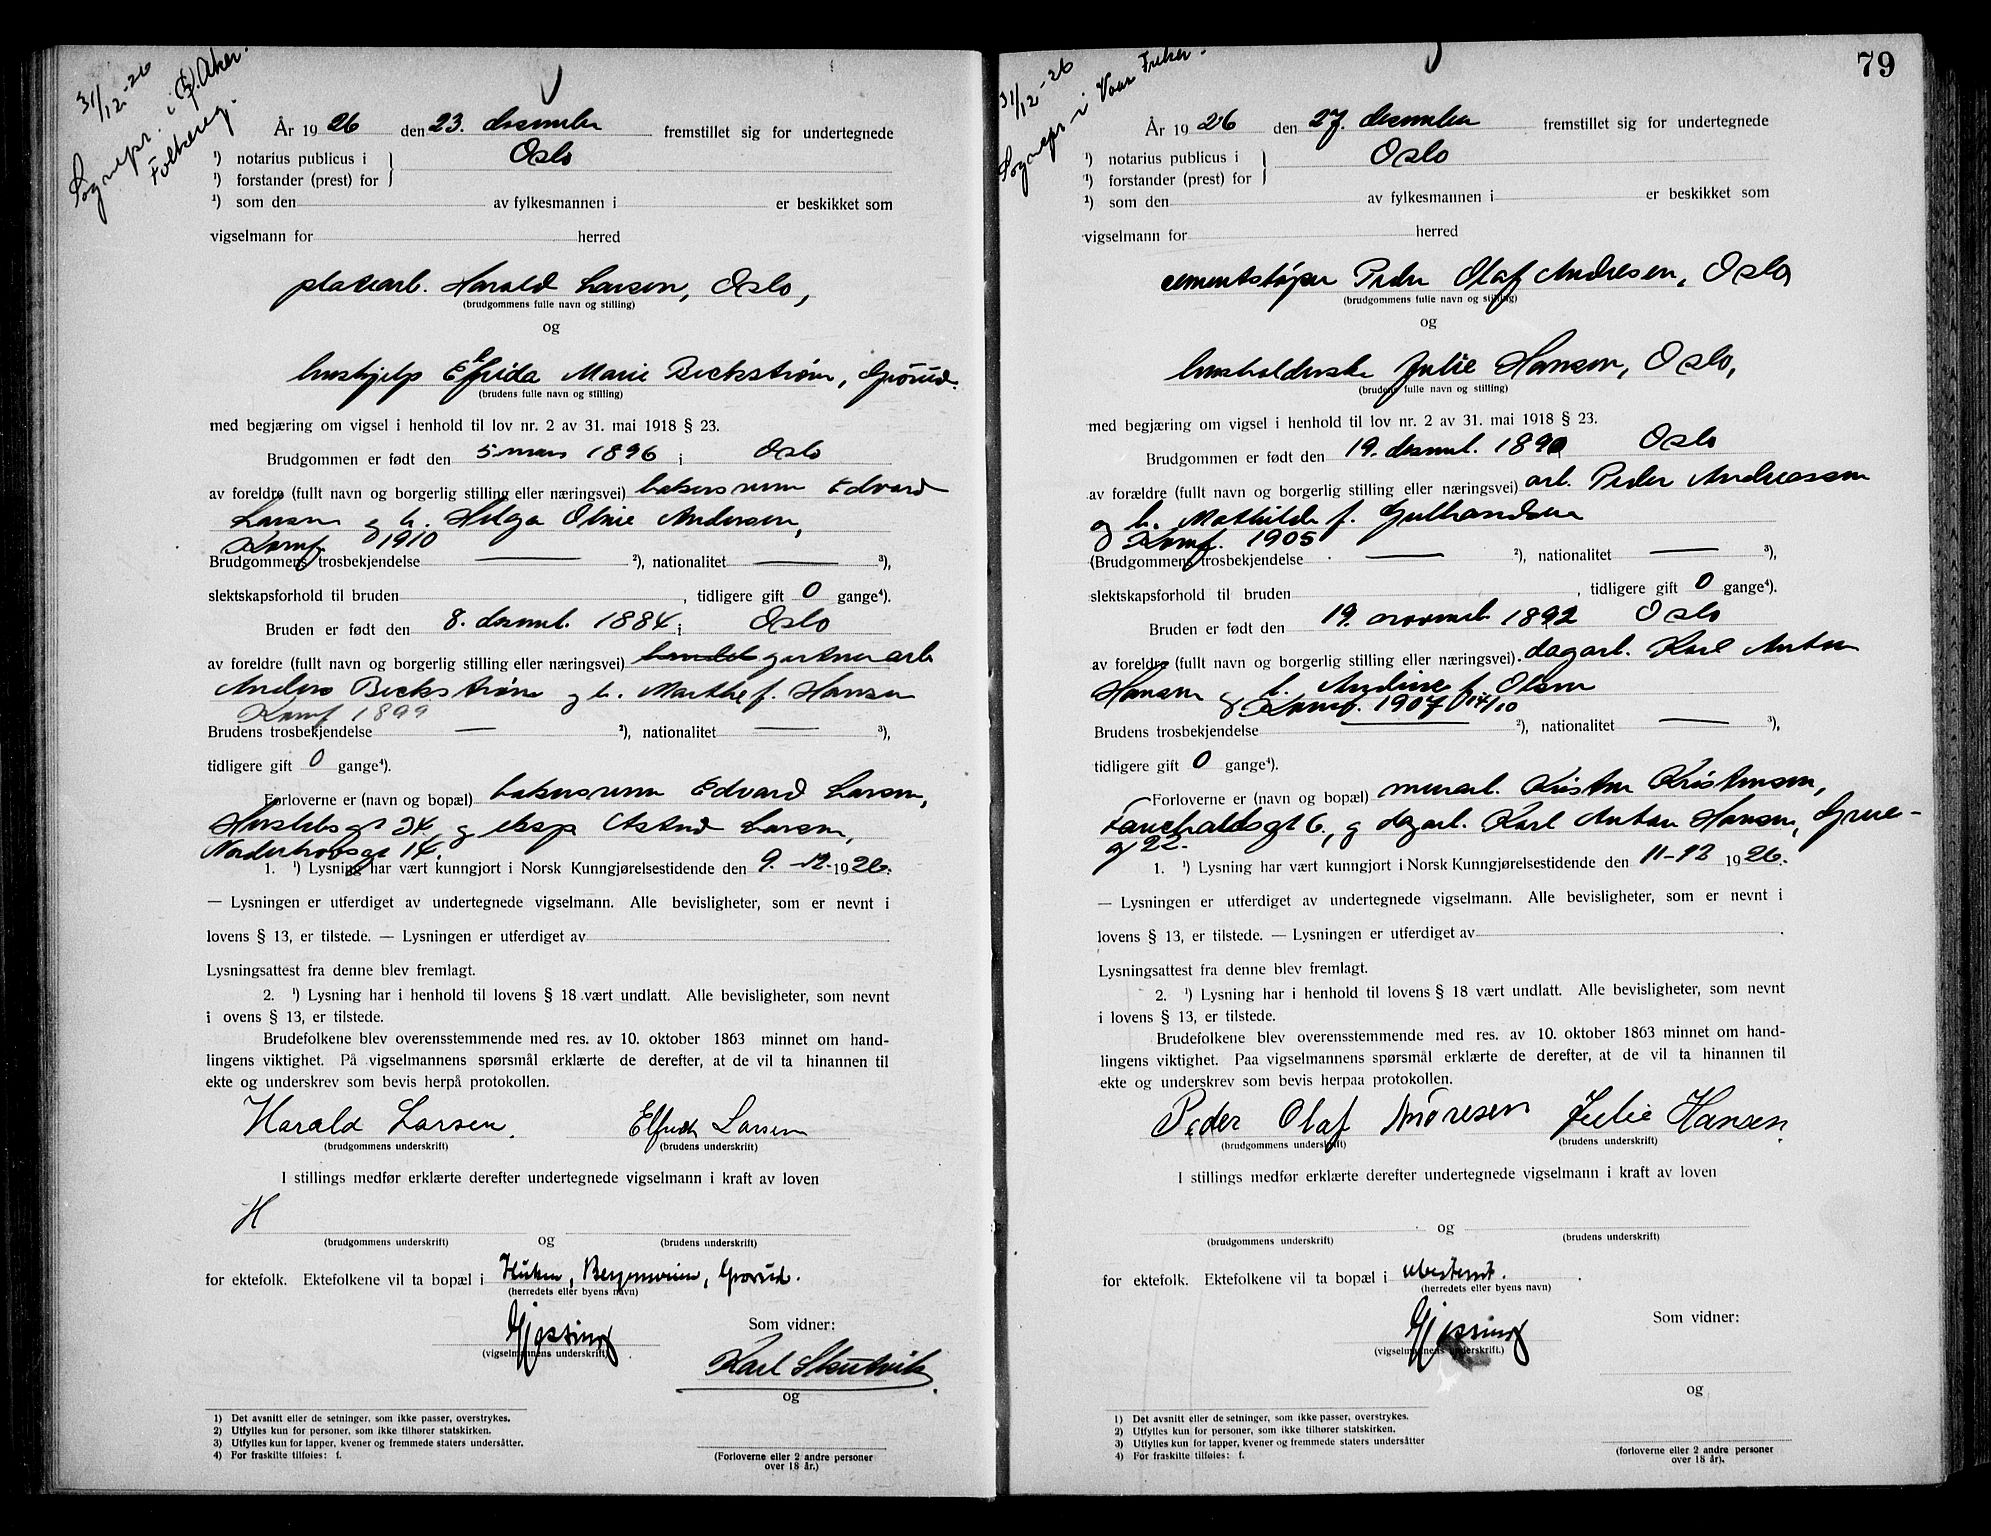 31/12-26
Sognepr. i Ø. Aker.
Folkereg.
År 1926 den 23. desember fremstillet sig for undertegnede
¹) notarius publicus i Oslo
¹) forstander (prest) for
¹) som den av fylkesmannen i er beskikket som
vigselmann for herred
platearb. Harald Larsen, Oslo,
(brudgommens fulle navn og stilling)
og
hushjelp Elfrida Marie Beckstrøm, Grorud.
(brudens fulle navn og stilling)
med begjæring om vigsel i henhold til lov nr. 2 av 31. mai 1918 § 23.
Brudgommen er født den 5 mars 1896 i Oslo
av foreldre (fullt navn og borgerlig stilling eller næringsvei) bakersvenn Edvard
Larsen og h. Helga Oline Andersen,
Konf. 1910
Brudgommens trosbekjendelse — ²), nationalitet — ³),
slektskapsforhold til bruden , tidligere gift 0 gange⁴).
Bruden er født den 8. desemb. 1884 i Oslo
av foreldre (fullt navn og borgerlig stilling eller næringsvei) gartnerarb
Anders Beckstrøm og h. Marthe f. Hansen
Konf 1899
Brudens trosbekjendelse — ²), nationalitet — ³),
tidligere gift 0 gange⁴).
Forloverne er (navn og bopæl) bakersvenn Edvard Larsen,
gt 34, og eksp Astrid Larsen,
Norderhovsgt 14.
1. ¹) Lysning har vært kunngjort i Norsk Kunngjørelsestidende den 9.-12.-1926.
— Lysningen er utferdiget av undertegnede vigselmann. Alle bevisligheter, som er nevnt i
lovens § 13, er tilstede. — Lysningen er utferdiget av
Lysningsattest fra denne blev fremlagt.
2. ¹) Lysning har i henhold til lovens § 18 vært undlatt. Alle bevisligheter, som nevnt
i ovens § 13, er tilstede.
Brudefolkene blev overensstemmende med res. av 10. oktober 1863 minnet om hand-
lingens viktighet. På vigselmannens spørsmål erklærte de derefter, at de vil ta hinannen til
ekte og underskrev som bevis herpå protokollen.
Harald Larsen. Elfrida Larsen
(brudgommens underskrift) (brudens underskrift)
I stillings medfør erklærte derefter undertegnede vigselmann i kraft av loven
H
(brudgommens underskrift) og (brudens underskrift)
for ektefolk. Ektefolkene vil ta bopæl i Huken, Bergensveien, Grorud.
(herredets eller byens navn)
Gjessing Som vidner:
(vigselmannens underskrift)
Karl Skutvik
og
1) Det avsnitt eller de setninger, som ikke passer, overstrykes.
2) Utfylles kun for personer, som ikke tilhører statskirken.
3) Utfylles kun for lapper, kvener og fremmede staters undersåtter.
4) For fraskilte tilføies: f.
(Forloverne eller 2 andre personer
over 18 år.)
79
31/12-26
Sognepr i Vaar Frelser.
År 1926 den 27. desember fremstillet sig for undertegnede
¹) notarius publicus i Oslo
¹) forstander (prest) for
¹) som den av fylkesmannen i er beskikket som
vigselmann for herred
cementstøper Peder Olaf Andresen, Oslo
(brudgommens fulle navn og stilling)
og
husholderske Julie Hansen, Oslo,
(brudens fulle navn og stilling)
med begjæring om vigsel i henhold til lov nr. 2 av 31. mai 1918 § 23.
Brudgommen er født den 19. desemb. 1890 Oslo
av forældre (fullt navn og borgerlig stilling eller næringsvei) arb. Peder Andreassen
og h. Mathilde f. Gulbrandsen
Konf. 1905
(Brudgommens trosbekjendelse — ²), nationalitet — ³),
slektskapsforhold til bruden , tidligere gift 0 gange⁴).
Bruden er født den 19. novemb. 1892 Oslo
av foreldre (fullt navn og borgerlig stilling eller næringsvei) dagarb. Karl Anton
Hansen og h. Andine f. Olsen
Konf. 1907 14/10
Brudens trosbekjendelse — ²), nationalitet — ³),
tidligere gift 0 gange⁴).
Forloverne er (navn og bopæl) murarb. Kristen Kristensen,
Fauchaldsgt 6, og dagarb. Karl Anton Hansen, Grue-
gt 22.
1. ¹) Lysning har vært kunngjort i Norsk Kunngjørelsestidende den 11-12 1926.
— Lysningen er utferdiget av undertegnede vigselmann. Alle bevisligheter, som er nevnt i
lovens § 13, er tilstede. — Lysningen er utferdiget av
Lysningsattest fra denne blev fremlagt.
2. ¹) Lysning har i henhold til lovens § 18 vært undlatt. Alle bevisligheter, som nevnt
i lovens § 13, er tilstede.
Brudefolkene blev overensstemmende med res. av 10. oktober 1863 minnet om hand-
lingens viktighet. Paa vigselmannens spørsmål erklærte de derefter, at de vil ta hinannen til
ekte og underskrev som bevis herpaa protokollen.
Peder Olaf Andresen Julie Hansen.
(brudgommens underskrift) (brudens underskrift)
I stillings medfør erklærte derefter undertegnede vigselmann i kraft av loven
og
(brudgommens underskrift) (brudens underskrift)
for ektefolk. Ektefolkene vil ta bopæl i ubestemt.
(herredets eller byens navn)
Gjessing Som vidner:
(vigselmannens underskrift.)
og
1) Det avsnitt eller de setninger, som ikke passer, overstrykes.
2) Utfylles kun for personer, som ikke tilhører statskirken.
3) Utfylles kun for lapper, kvener og fremmede staters undersåtter
4) For fraskilte tilføies: f.
(forloverne eller 2 andre personer
over 18 år).